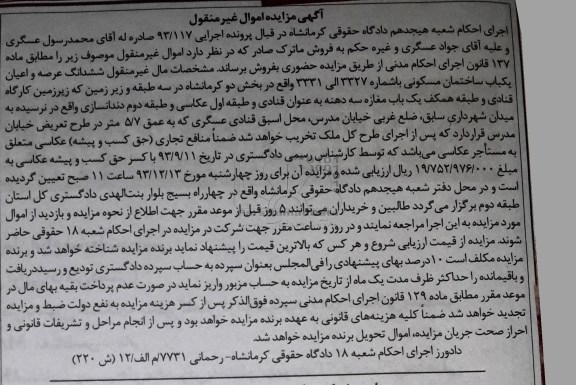 آگهی مزایده اموال غیرمنقول
اجرای احکام شعبه هیجدهم دادگاه حقوقی کرمانشاه در قبال پرونده اجرایی ۹۳/۱۱۷ صادره له آقای محمدرسول عسگری
و علیه آقای جواد عسگری و غیره حکم به فروش ماترک صادر که در نظر دارد اموال غیرمنقول موصوف زیر را مطابق ماده
۱۳۷ قانون اجرای احکام مدنی از طریق مزایده حضوری بفروش برساند. مشخصات مال غیرمنقول ششدانگ عرصه و اعیان
یکباب ساختمان مسکونی باشماره ۳۳۲۷ الی ۳۳۳۱ واقع در بخش دو کرمانشاه در سه طبقه و زیر زمین که زیرزمین کارگاه
قنادی و طبقه همکف یک باب مغازه سه دهنه به عنوان قنادی و طبقه اول عکاسی و طبقه دوم دندانسازی واقع در نرسیده به
میدان شهرداری سابق، ضلع غربی خیابان مدرس، محل اسبق قنادی عسگری که به عمق ۵/۷ متر در طرح تعریض خیابان
مدرس قراردارد که پس از اجرای طرح کل ملک تخریب خواهد شد ضمناً منافع تجاری (حق کسب و پیشه) عکاسی متعلق
به مستأجر عکاسی می‌باشد که توسط کارشناس رسمی دادگستری در تاریخ ۹۳/۹/۱۱ با کسر حق کسب و پیشه عکاسی به
مبلغ ۱۹/۷۵۲/۹۷۶/۰۰۰ ریال ارزیابی شده و مزایده آن برای روز چهارشنبه مورخ ۹۳/۱۲/۱۳ ساعت ۱۱ صبح تعیین گردیده
است و در محل دفتر شعبه هیجدهم دادگاه حقوقی کرمانشاه واقع در چهارراه بسیج بلوار بنت‌الهدی دادگستری کل استان
طبقه دوم برگزار می‌گردد طالبین و خریداران می‌توانند ۵ روز قبل از موعد مقرر جهت اطلاع از نحوه مزایده و بازدید از اموال
مورد مزایده به این اجرا مراجعه نمایند و در روز و ساعت مقرر جهت شرکت در مزایده در اجرای احکام شعبه ۱۸ حقوقی حاضر
شوند. مزایده از قیمت ارزیابی شروع و هر کس که بالاترین قیمت را پیشنهاد نماید برنده مزایده شناخته خواهد شد و برنده
مزایده مکلف است ۱۰ درصد بهای پیشنهادی را فی‌المجلس بعنوان سپرده به حساب سپرده دادگستری تودیع و رسید دریافت
و باقیمانده را حداکثر ظرف مدت یک ماه از تاریخ مزایده به حساب مزبور واریز نماید در صورت عدم پرداخت بقیه بهای مال در
موعد مقرر مطابق ماده ۱۲۹ قانون اجرای احکام مدنی سپرده فوق‌الذکر پس از کسر هزینه مزایده به نفع دولت ضبط و مزایده
تجدید خواهد شد ضمناً کلیه هزینه‌های قانونی به عهده برنده مزایده خواهد بود و پس از انجام مراحل و تشریفات قانونی و
احراز صحت جریان مزایده، اموال تحویل برنده مزایده خواهد شد.
دادورز اجرای احکام شعبه ۱۸ دادگاه حقوقی کرمانشاه- رحمانی ۷۷۳۱/م الف/۱۲ (ش ۲۲۰)